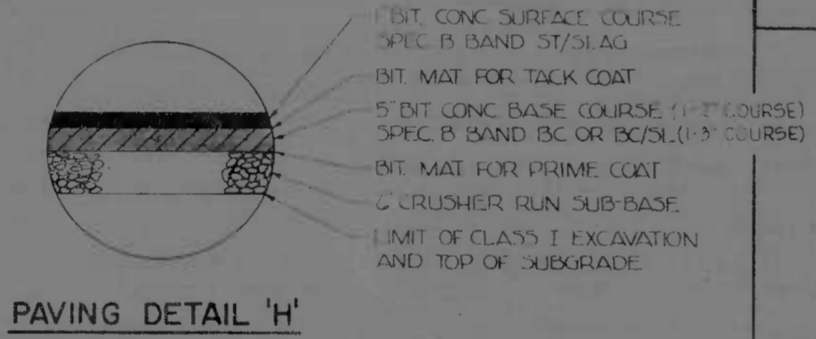 1" BIT. CONC SURFACE COURSE
SPEC B BAND ST/SLAG
BIT. MAT FOR TACK COAT
5" BIT CONC BASE COURSE (1-2" COURSE)
SPEC. B BAND BC OR BC/SL (1-3" COURSE)
BIT. MAT FOR PRIME COAT
6" CRUSHER RUN SUB-BASE
LIMIT OF CLASS I EXCAVATION
AND TOP OF SUBGRADE
PAVING DETAIL 'H'